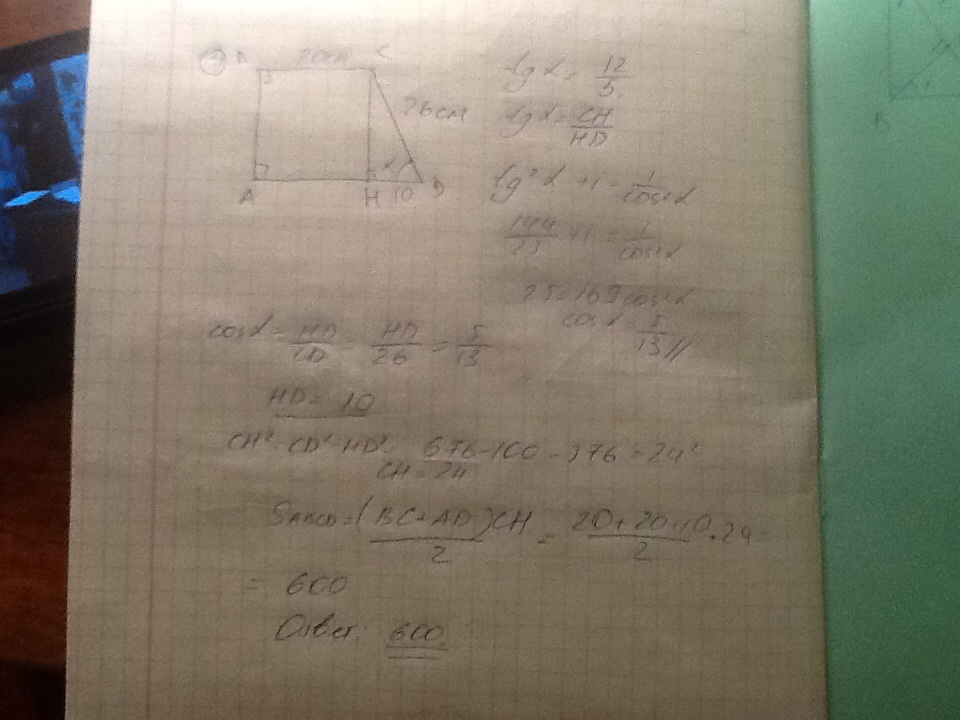 2 B 20см C
26 см
A H 10 D
α
tg α = 12/5
tg α = CH/HD
tg² α + 1 = 1/cos² α
144/25 + 1 = 1/cos² α
25 = 169 cos² α
cos α = 5/13 //
cos α = HD/CD = HD/26 = 5/13
HD = 10
CH² = CD² - HD² = 676 - 100 = 576 = 24²
CH = 24
SABCD = (BC + AD)CH/2 = 20 + 20 + 10/2 · 24 =
= 600
Ответ: 600